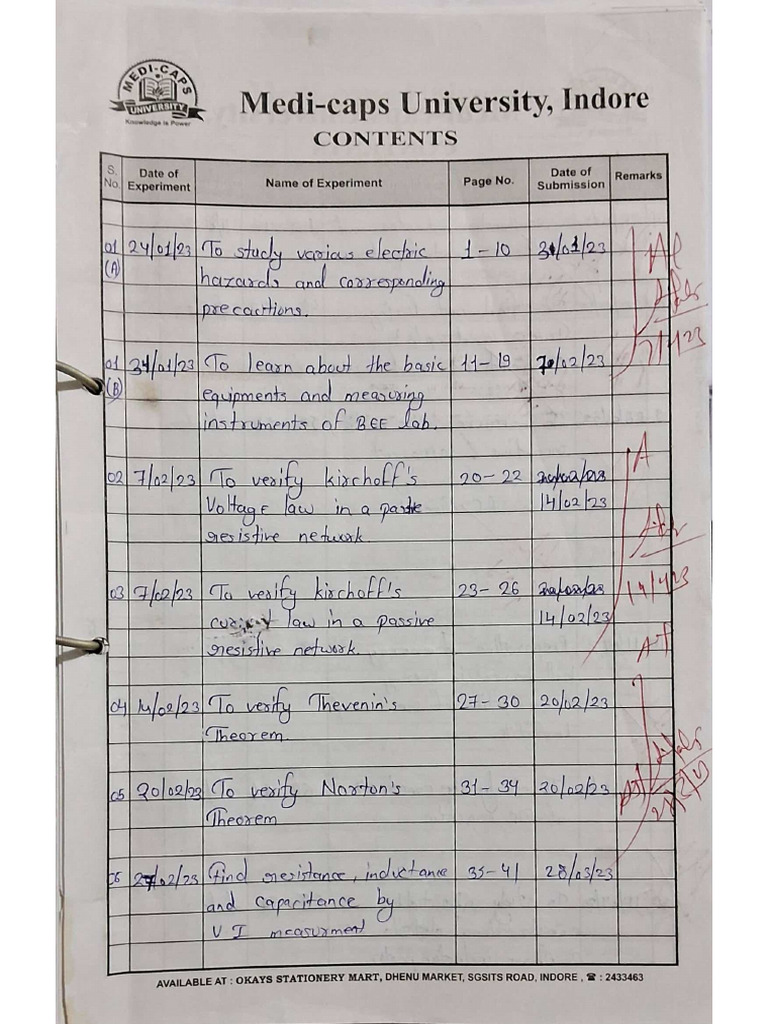 MEDI-CAPS
UNIVERSITY
Knowledge is Power
Medi-caps University, Indore
CONTENTS
S. No. Date of Experiment Name of Experiment Page No. Date of Submission Remarks
01 (A) 24/01/23 To study varias electric 1-10 31/01/23
hazards and corresponding
precactions.
01 (B) 31/01/23 To learn about the basic 11-19 7/02/23
equipments and measuring
instruments of BEE lab.
02 7/02/23 To verify kirchoff's 20-22
Voltage law in a 14/02/23
resistive network.
A
03 7/02/23 To verify kirchoff's 23-26
law in a passive 14/02/23
resistive network.
A+
04 14/02/23 To verify Thevenin's 27-30 20/02/23
Theorem.
05 20/02/23 To verify Norton's 31-34 20/02/23
Theorem
06 27/02/23 Find resistance, inductance 35-41 28/03/23
and capacitance by
V I measurment
AVAILABLE AT : OKAYS STATIONERY MART, DHENU MARKET, SGSITS ROAD, INDORE, ☎ : 2433463